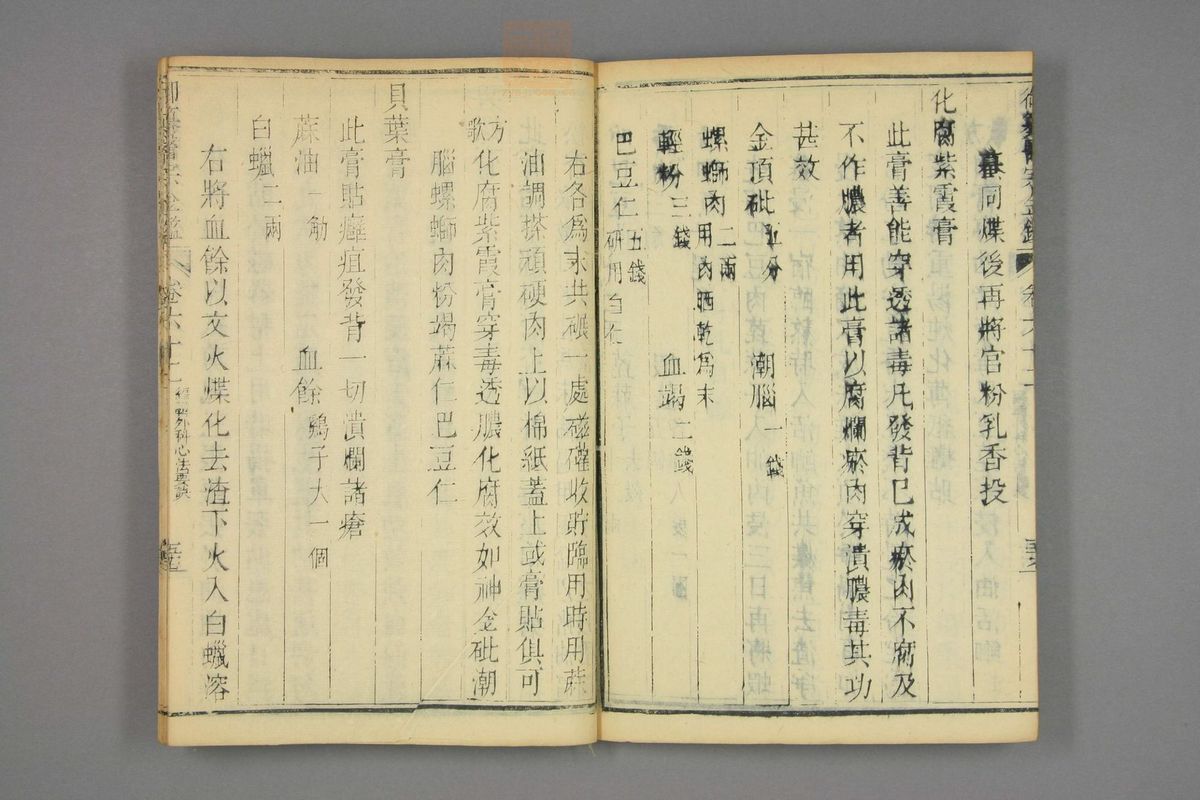 蟇同煠後再將官粉乳香投
化腐紫霞膏
此膏善能穿透諸毒凡發背已成瘀肉不腐及
不作膿者用此膏以腐爛瘀肉穿潰膿毒其功
甚效
金頂砒五分 潮腦一錢
螺螄肉二兩用肉晒乾爲末
輕粉三錢 血竭二錢
巴豆仁五錢研用白仁
右各爲末共碾一處磁罐收貯臨用時用蔴
油調搽頑硬肉上以棉紙蓋上或膏貼俱可
方歌化腐紫霞膏穿毒透膿化腐效如神金砒潮
腦螺螄肉粉竭蔴仁巴豆仁
貝葉膏
此膏貼癰疽發背一切潰爛諸瘡
蔴油一觔 血餘鷄子大一個
白蠟二兩
右將血餘以文火煠化去渣下火入白蠟溶
卷六十二
外科心法要訣